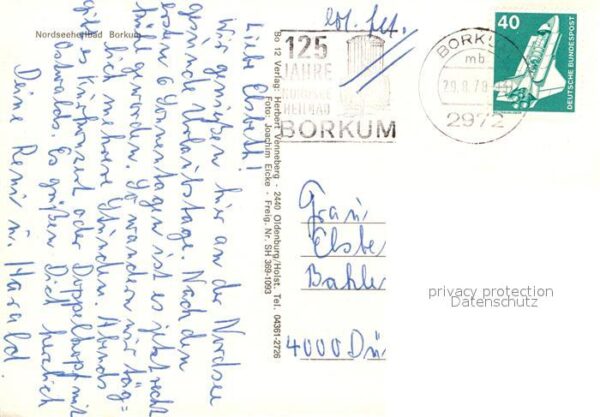 Nordseeheilbad Borkum
Liebe Elsbeth!
Wir genießen hier an der Nordsee
geruhsame Urlaubstage. Nach den
ersten 6 Sonnentagen ist es jetzt recht
kühl geworden. Wir wandern täg=
lich mehrere Stunden. Abends
gibt es Kurkonzert oder Doppelkopf mit
Ostwalds. Es grüßen Dich herzlich
Deine Remi u. Harald.
Bo 12 Verlag: Herbert Venneberg - 2440 Oldenburg/Holst. Tel. 04361-2726
Foto: Joachim Eicke - Freig. Nr. SH 369-1093
125
JAHRE
NORDSEE
HEILBAD
BORKUM
BORKUM
mb
2972
40
DEUTSCHE BUNDESPOST
Frau
Elsbe
Bahle
4000 Dü
privacy protection
Datenschutz